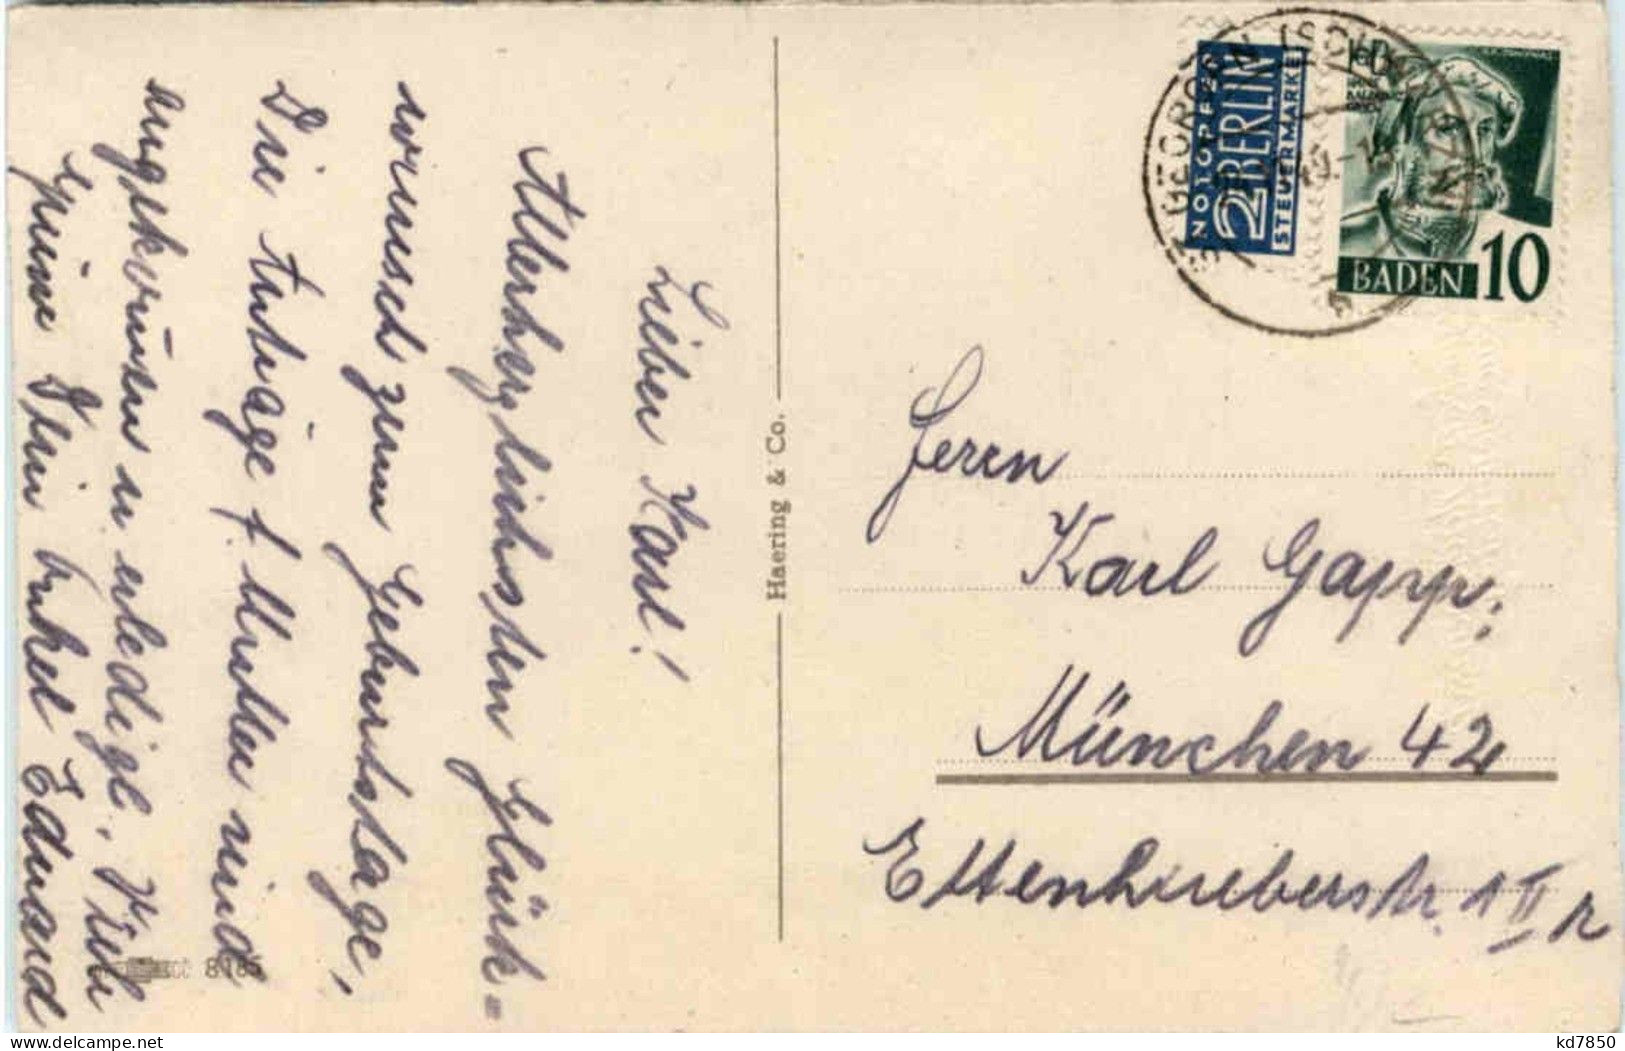 Lieber Karl!
Allerherzlichsten Glück=
wunsch zum Geburtstage,
Die Anträge f. Mutter sind
angekommen u. erledigt. Viele
Grüsse Dein Onkel Eduard
8185
Haering & Co.
NOTOPFER
2 BERLIN
STEUERMARKE
ST. GEORGEN (SCHWARZW)
b
BADEN 10
Herrn
Karl Gapp,
München 42
Ettenhueberstr. 1 II r
kd7850